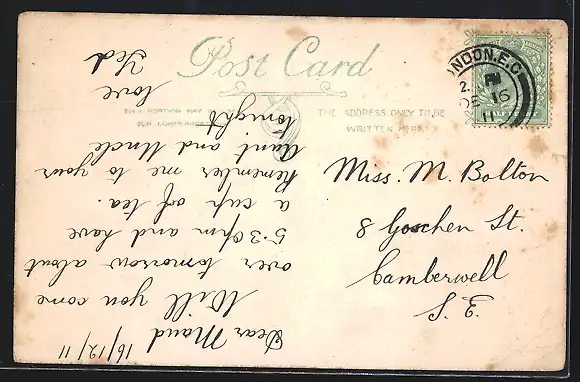 Post Card
THE ADDRESS ONLY TO BE
WRITTEN HERE
LONDON.E.C
2. PM
DE 16
11
Miss. M. Bolton
8 Goschen St.
Camberwell
S.E.
16/12/11
Dear Maud
Will you come
over tomorrow about
5.30pm and have
a cup of tea.
Remember me to your
Aunt and Uncle
tonight
love
Ted